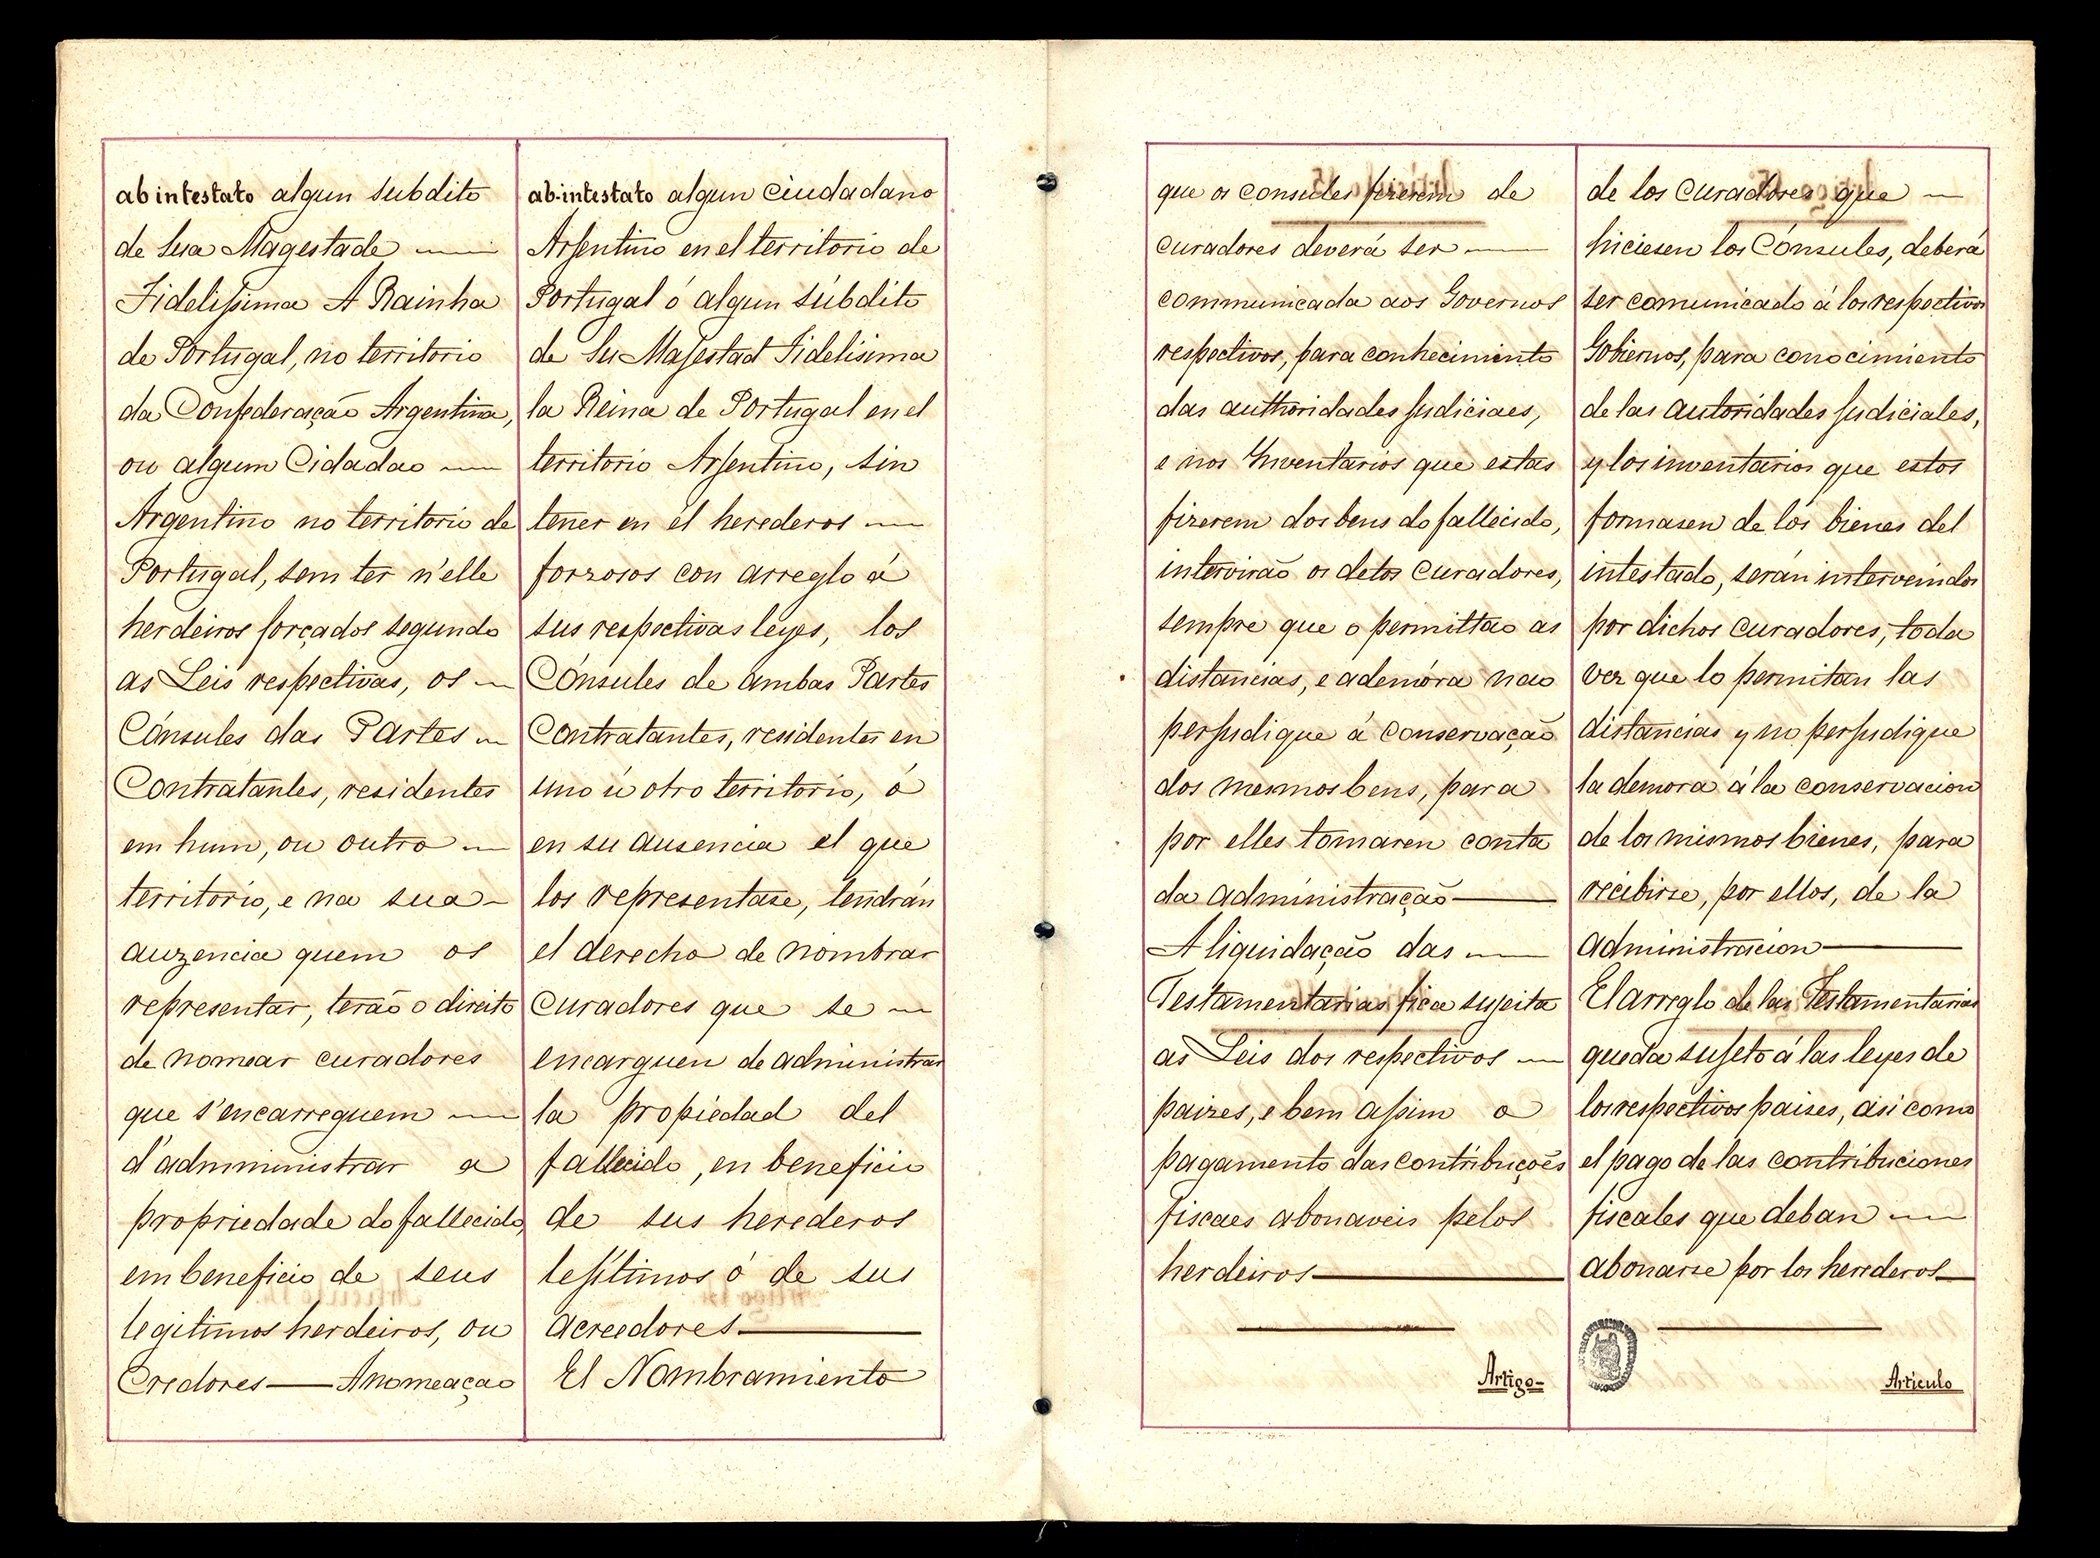 ab intestato algun subdito
de Sua Magestade
Fidelissima A Rainha
de Portugal, no territorio
da Confederação Argentina,
ou algum Cidadao
Argentino no territorio de
Portugal, sem ter n'elle
herdeiros forçados segundo
as Leis respectivas, os
Cónsules das Partes
Contratantes, residentes
em hum, ou outro
territorio, e na sua
auzencia quem os
representar, terão o direito
de nomear curadores
que s'encarreguem
d'admministrar a
propriedade do fallecido,
em beneficio de seus
legitimos herdeiros, ou
Credores — A nomeaçao
ab-intestato algun Ciudadano
Arjentino en el territorio de
Portugal ó algun súbdito
de Su Majestad Fidelísima
la Reina de Portugal en el
territorio Arjentino, sin
tener en él herederos
forzosos con arreglo á
sus respectivas leyes, los
Cónsules de ambas Partes
Contratantes, residentes en
uno ú otro territorio, ó
en su ausencia el que
los representase, tendrán
el derecho de nombrar
Curadores que se
encarguen de administrar
la propiedad del
fallecido, en beneficio
de sus herederos
lejítimos ó de sus
acreedores
El Nombramiento
que os consules fizerem de
curadores deverá ser
communicada aos Governos
respectivos, para conhecimento
das authoridades judiciaes,
e nos Inventarios que estas
fizerem dos bens do fallecido,
intervirão os detos Curadores,
sempre que o permittao as
distancias, e a demóra nao
perjudique á conservação
dos mesmos bens, para
por elles tomaren conta
da administração
A liquidação das
Testamentarias fica sujeita
as Leis dos respectivos
paizes, e bem assim o
pagamento das contribuções
fiscaes abonaveis pelos
herdeiros
Artigo-
de los Curadores que
hiciesen los Cónsules, deberá
ser comunicado á los respectivos
Gobiernos, para conocimiento
de las autoridades judiciales,
y los inventarios que estos
formasen de los bienes del
intestado, serán intervenidos
por dichos curadores, toda
vez que lo permitan las
distancias y no perjudique
la demora á la conservacion
de los mismos bienes, para
recibirse, por ellos, de la
administracion
El arreglo de las Testamentarias
queda sujeto á las leyes de
los respectivos paises, asi como
el pago de las contribuciones
fiscales que deban
abonarse por los herederos
Articulo